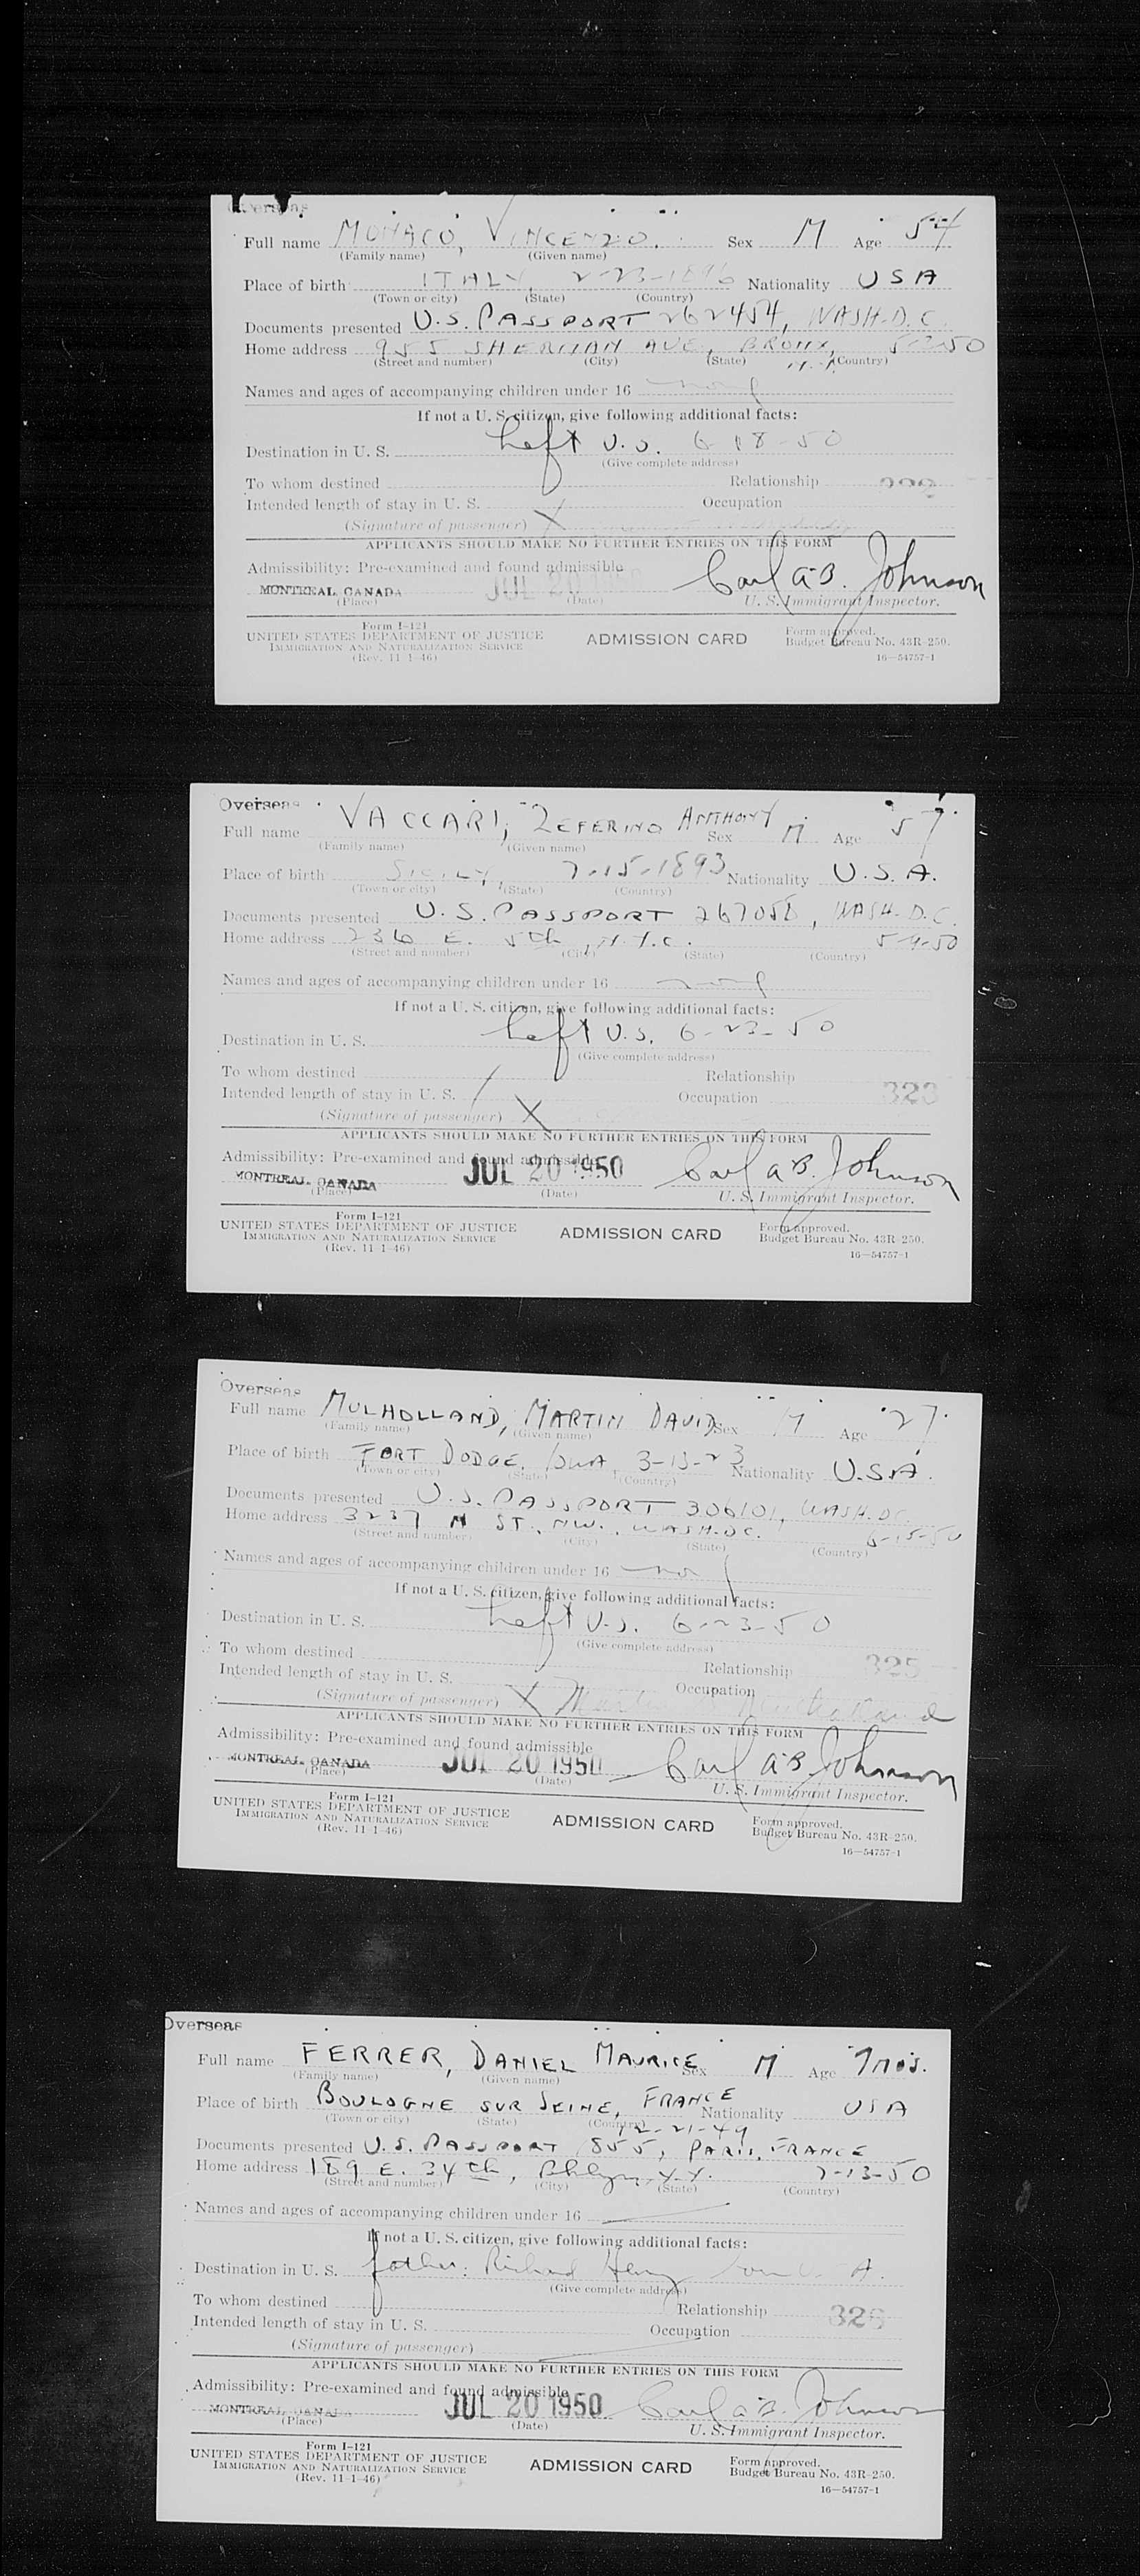 Overseas
Full name MONACO, VINCENZO. Sex M Age 54
(Family name) (Given name)
Place of birth ITALY, 2-23-1896 Nationality USA
(Town or city) (State) (Country)
Documents presented U.S. PASSPORT 262454, WASH. D.C.
Home address 955 SHERMAN AVE., BRONX, 5-2-50
(Street and number) (City) (State) N.Y. (Country)
Names and ages of accompanying children under 16 none
If not a U. S. citizen, give following additional facts:
Destination in U. S. Left U.S. 6-18-50
(Give complete address)
To whom destined Relationship
Intended length of stay in U. S. Occupation
(Signature of passenger) X
APPLICANTS SHOULD MAKE NO FURTHER ENTRIES ON THIS FORM
Admissibility: Pre-examined and found admissible
MONTREAL, CANADA JUL 20 1950 Carl A.B. Johnson
(Place) (Date) U. S. Immigrant Inspector.
Form I-121
UNITED STATES DEPARTMENT OF JUSTICE ADMISSION CARD Form approved.
IMMIGRATION AND NATURALIZATION SERVICE Budget Bureau No. 43R-250.
(Rev. 11-1-46) 16—54757-1
Overseas
Full name VACCARI, ZEFERINO ANTHONY Sex M Age 57
(Family name) (Given name)
Place of birth SICILY, 7-15-1893 Nationality U.S.A.
(Town or city) (State) (Country)
Documents presented U.S. PASSPORT WASH. D.C.
Home address 236 E. 5th, N.Y.C. 5-9-50
(Street and number) (City) (State) (Country)
Names and ages of accompanying children under 16 none
If not a U. S. citizen, give following additional facts:
Destination in U. S. Left U.S. 6-23-50
(Give complete address)
To whom destined Relationship
Intended length of stay in U. S. Occupation 323
(Signature of passenger) X
APPLICANTS SHOULD MAKE NO FURTHER ENTRIES ON THIS FORM
Admissibility: Pre-examined and found admissible
MONTREAL, CANADA JUL 20 1950 Carl A.B. Johnson
(Place) (Date) U. S. Immigrant Inspector.
Form I-121
UNITED STATES DEPARTMENT OF JUSTICE ADMISSION CARD Form approved.
IMMIGRATION AND NATURALIZATION SERVICE Budget Bureau No. 43R-250.
(Rev. 11-1-46) 16—54757-1
Overseas
Full name MULHOLLAND, MARTIN DAVID Sex M Age 27
(Family name) (Given name)
Place of birth FORT DODGE, IOWA, 3-13-23 Nationality U.S.A.
(Town or city) (State) (Country)
Documents presented U.S. PASSPORT 306101, WASH. DC
Home address 3237 N ST., NW., WASH. DC. 6-15-50
(Street and number) (City) (State) (Country)
Names and ages of accompanying children under 16 none
If not a U. S. citizen, give following additional facts:
Destination in U. S. Left U.S. 6-23-50
(Give complete address)
To whom destined Relationship 325
Intended length of stay in U. S. Occupation
(Signature of passenger) X Martin Mulholland
APPLICANTS SHOULD MAKE NO FURTHER ENTRIES ON THIS FORM
Admissibility: Pre-examined and found admissible
MONTREAL, CANADA JUL 20 1950 Carl A.B. Johnson
(Place) (Date) U. S. Immigrant Inspector.
Form I-121
UNITED STATES DEPARTMENT OF JUSTICE ADMISSION CARD Form approved.
IMMIGRATION AND NATURALIZATION SERVICE Budget Bureau No. 43R-250.
(Rev. 11-1-46) 16—54757-1
Overseas
Full name FERRER, DANIEL MAURICE Sex M Age 7 mos.
(Family name) (Given name)
Place of birth BOULOGNE SUR SEINE, FRANCE Nationality USA
(Town or city) (State) (Country) 12-21-49
Documents presented U.S. PASSPORT 1855, PARIS, FRANCE
Home address 189 E. 34th, Bklyn, N.Y. 7-13-50
(Street and number) (City) (State) (Country)
Names and ages of accompanying children under 16
If not a U. S. citizen, give following additional facts:
Destination in U. S. father: Richard Henry
(Give complete address)
To whom destined Relationship 326
Intended length of stay in U. S. Occupation
(Signature of passenger)
APPLICANTS SHOULD MAKE NO FURTHER ENTRIES ON THIS FORM
Admissibility: Pre-examined and found admissible
MONTREAL, CANADA JUL 20 1950 Carl A.B. Johnson
(Place) (Date) U. S. Immigrant Inspector.
Form I-121
UNITED STATES DEPARTMENT OF JUSTICE ADMISSION CARD Form approved.
IMMIGRATION AND NATURALIZATION SERVICE Budget Bureau No. 43R-250.
(Rev. 11-1-46) 16—54757-1